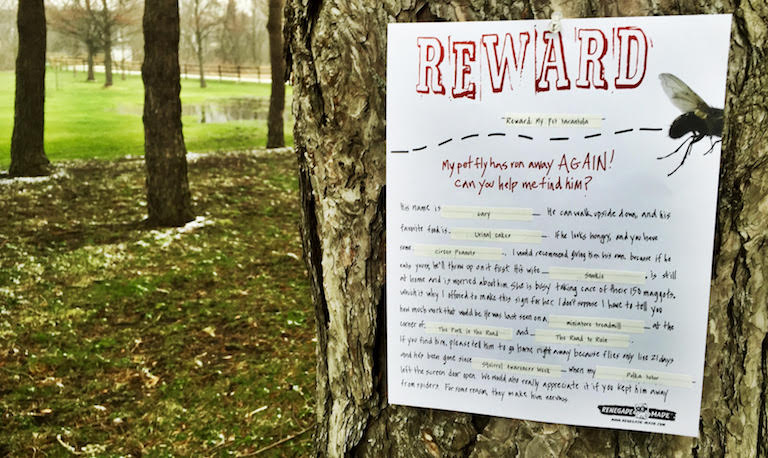 REWARD
Reward: My Pet tarantula
My pet fly has run away AGAIN!
can you help me find him?
His name is Gary. He can walk upside down, and his
favorite food is Urinal Cakes. If he looks hungry, and you have
some Circus Peanuts, I would recommend giving him his own because if he
eats yours, he'll throw up on it first. His wife Smokie, is still
at home and is worried about him. She is busy taking care of their 150 maggots,
which is why I offered to make this sign for her. I don't suppose I have to tell you
how much work that would be. He was last seen on a miniature treadmill at the
corner of The Fork in the Road and The Road to Ruin.
If you find him, please tell him to go home right away because flies only live 21 days
and he's been gone since Squirrel Awareness Week when my Polka tutor
left the screen door open. We would also really appreciate it if you kept him away
from spiders. For some reason, they make him nervous.
RENEGADE MADE
www.renegade-made.com